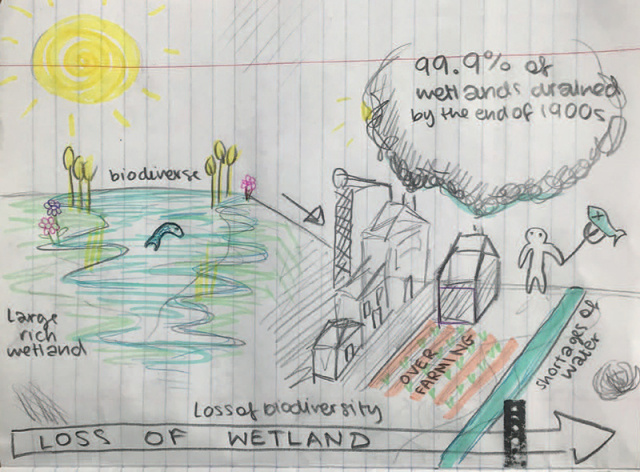 99.9% of
wetlands drained
by the end of 1900s
biodiverse
Large
rich
wetland
OVER
FARMING
shortages of
water
Loss of biodiversity
LOSS OF WETLAND